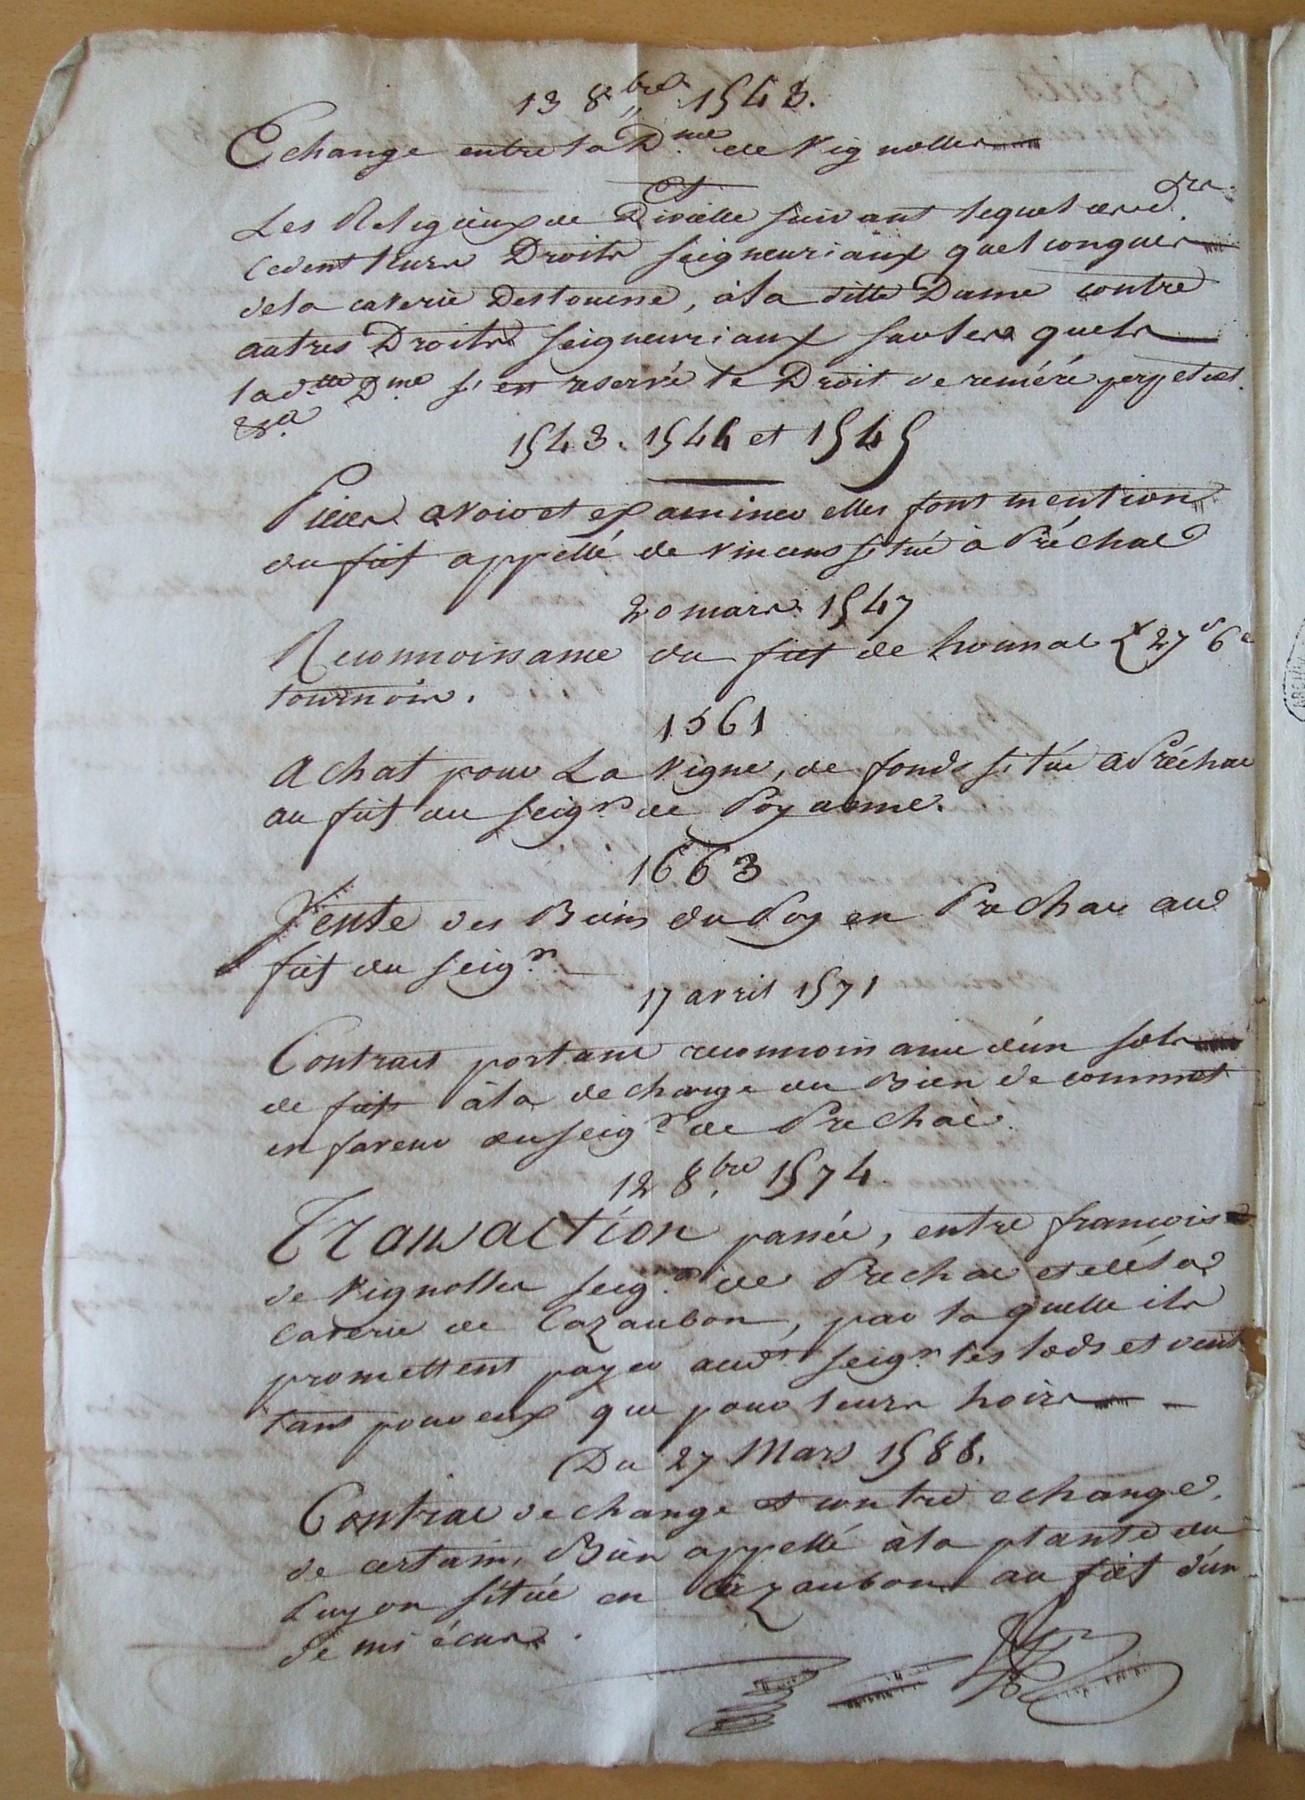 13 8.bre 1543.
Echange entre la D.me de Vignolles
Et
Les Religieux de Divielle suivant lequel
cedent leurs Droits seigneuriaux quelconques
de la caverie Destouesse, à la ditte Dame contre
autres Droits seigneuriaux sur lesquels
lad.tte D.me s'en reservé le Droit de reméré perpetuel.
1543. 1544 et 1545
Pieces a voir et examiner elles font mention
du fief appellé de Vincens situé à Préchac
20 mars 1547
Reconnoissance du fief de 27 s 6 d
tournois.
1561
Achat pour La Vigne, de fonds situé a Préchac
au fief du seigr de Poyanne.
1663
Vente des Biens du Poy en Prechac au
fief du seigr.
17 avril 1571
Contract portant reconnoissance d'un sols
de fief à la décharge du Bien de commet
en faveur du seigr de Prechac.
12 8.bre 1574.
Transaction passée, entre francois
de Vignolles seigr. de Prechac et de la
Caverie de Cazaubon, par laquelle ils
promettent payer audt seigr. les lods et vent
tant pour eux que pour leurs hoirs
Du 27 Mars 1588.
Contrac dechange et contre echange
de certain, Bien appellé à la plante du
Luzon situé en Cazaubon au fief d'un
demi écus.